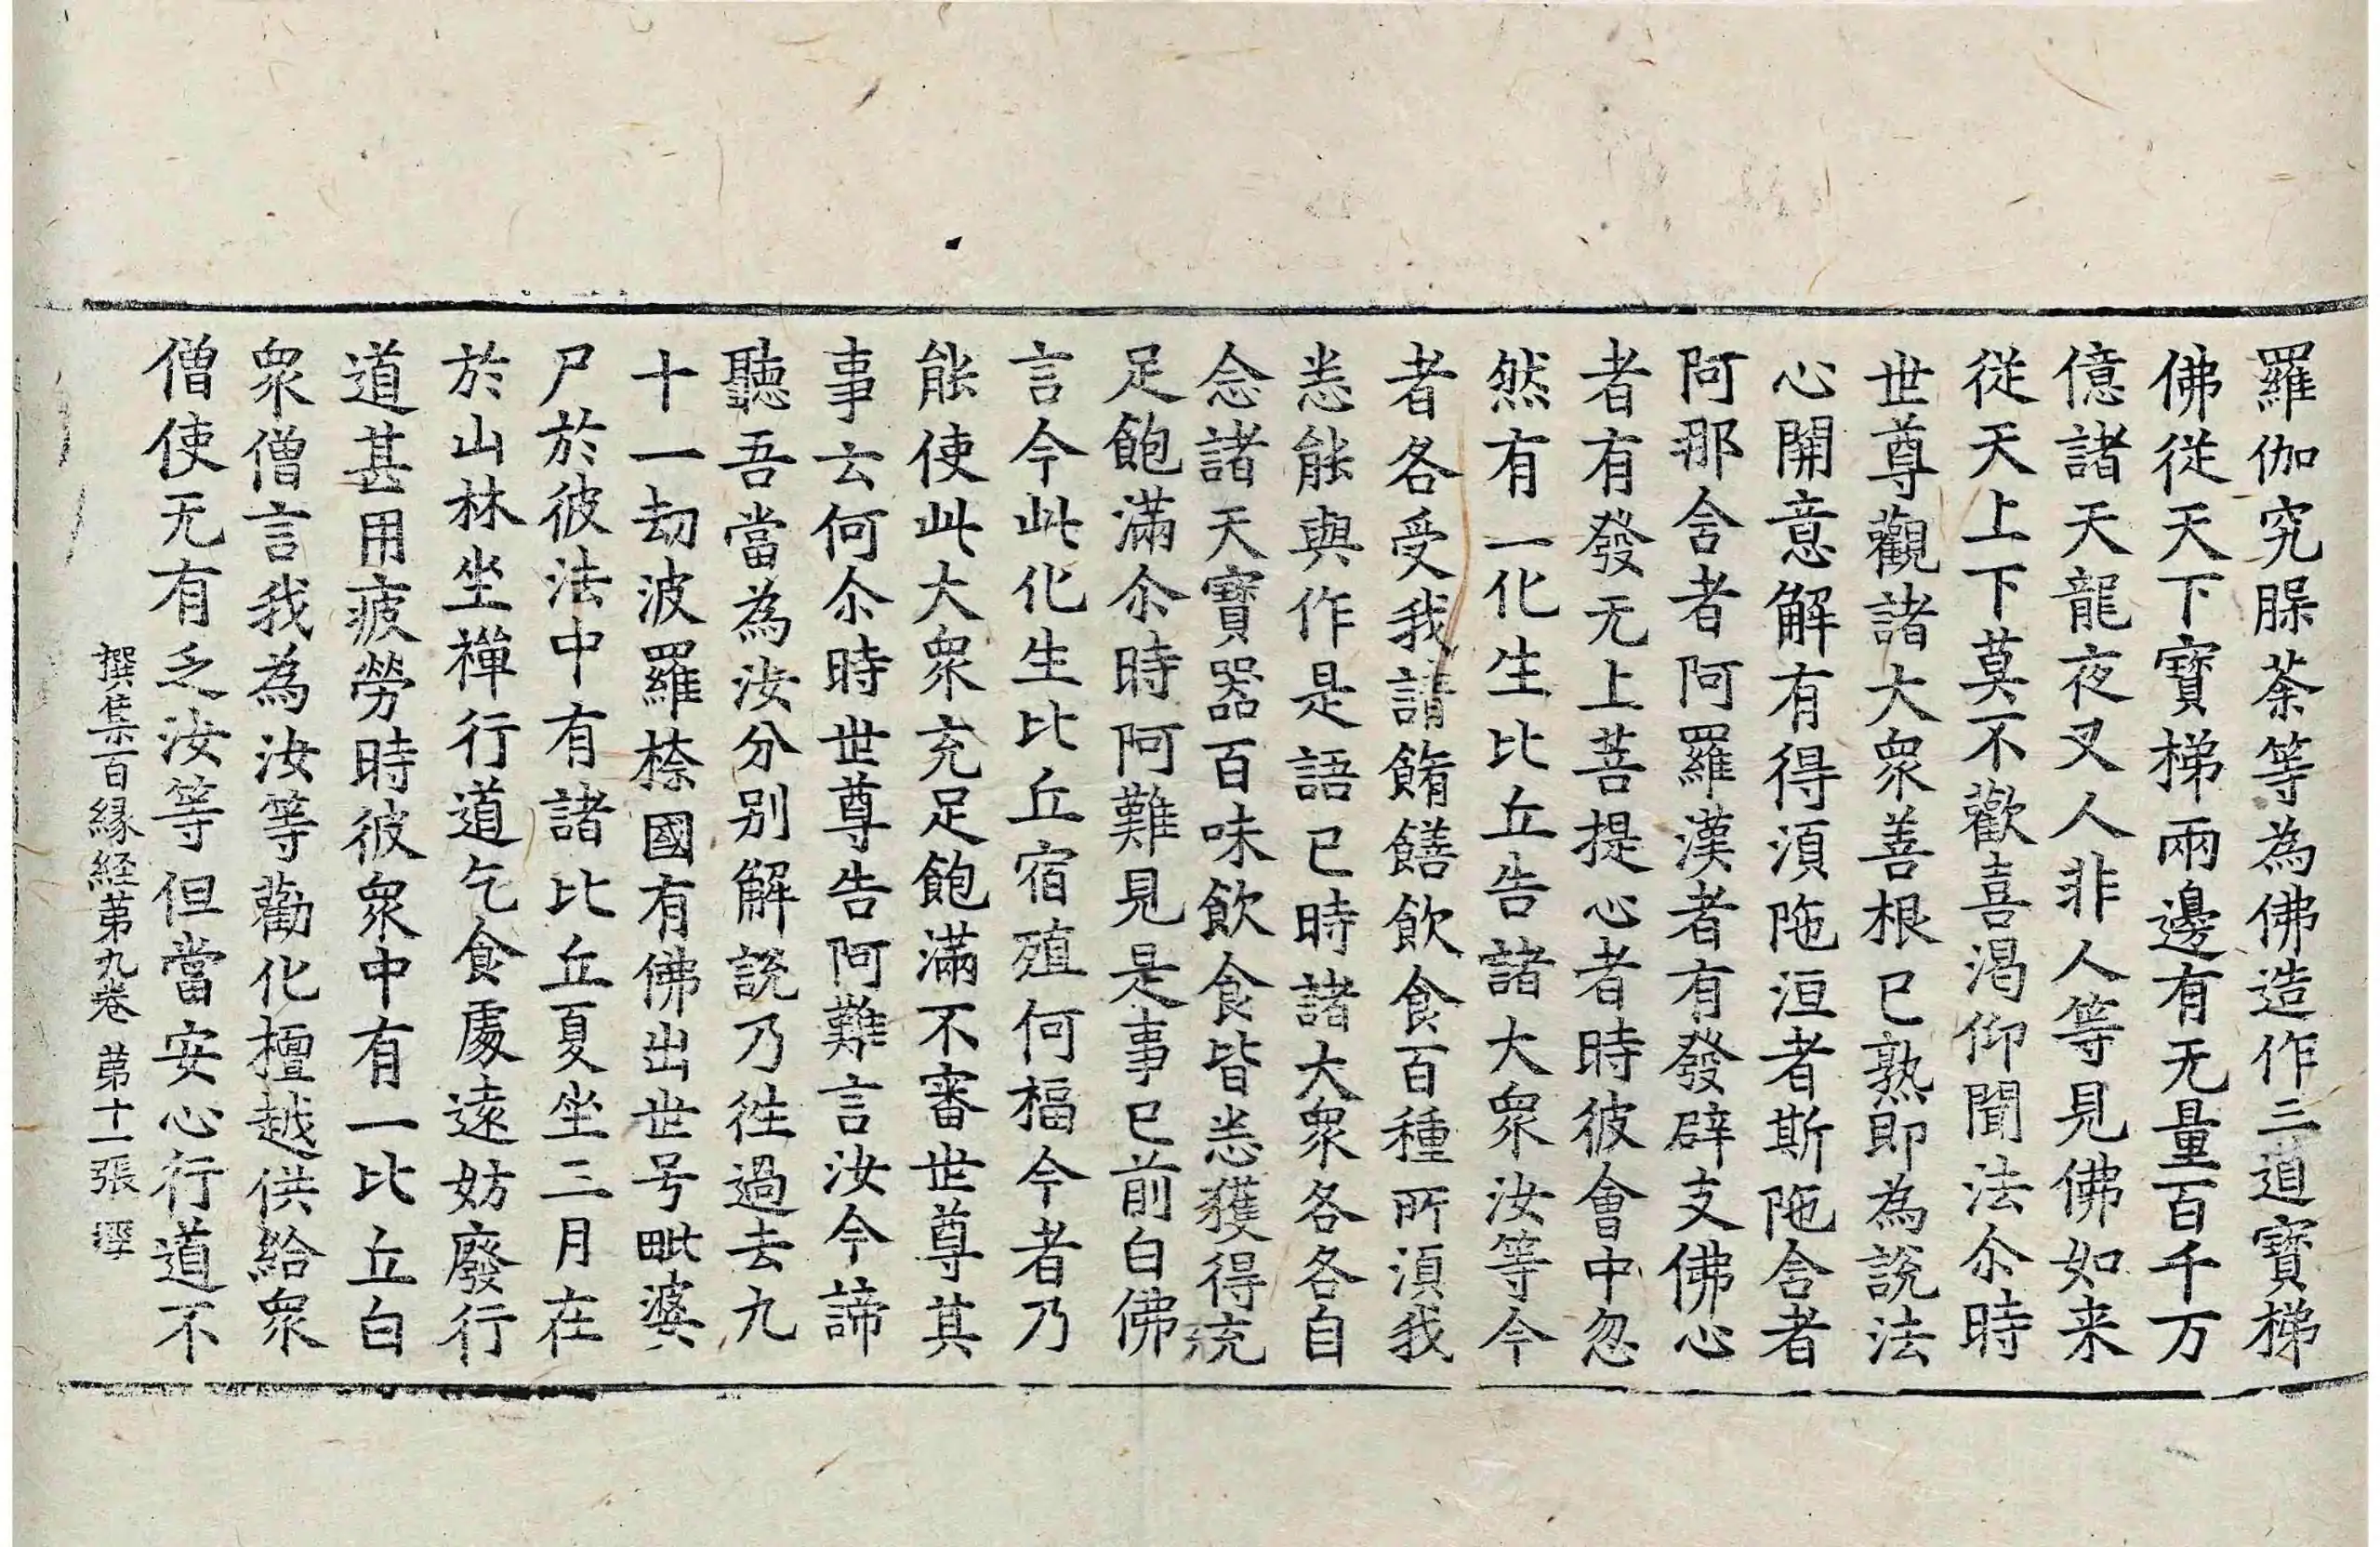 羅伽究腬荼等為佛造作三道寶梯
佛從天下寶梯兩邊有无量百千万
億諸天龍夜叉人非人等見佛如来
從天上下莫不歡喜渴仰聞法尒時
世尊觀諸大衆善根已熟即為說法
心開意解有得湏陁洹者斯陁含者
阿那含者阿羅漢者有發辟支佛心
者有發无上菩提心者時彼會中忽
然有一化生比丘告諸大衆汝等今
者各受我請餚饍飲食百種所湏我
悉能與作是語已時諸大衆各各自
念諸天寶器百味飲食皆悉獲得充
足飽滿尒時阿難見是事已前白佛
言今此化生比丘宿殖何福今者乃
能使此大衆充足飽滿不審世尊其
事云何尒時世尊告阿難言汝今諦
聽吾當為汝分别解說乃徃過去九
十一劫波羅㮈國有佛出世号毗婆
尸於彼法中有諸比丘夏坐三月在
於山林坐禪行道乞食處遠妨廢行
道甚用疲勞時彼衆中有一比丘白
衆僧言我為汝等勸化檀越供給衆
僧使无有乏汝等但當安心行道不
撰集百縁経第九卷 第十一張